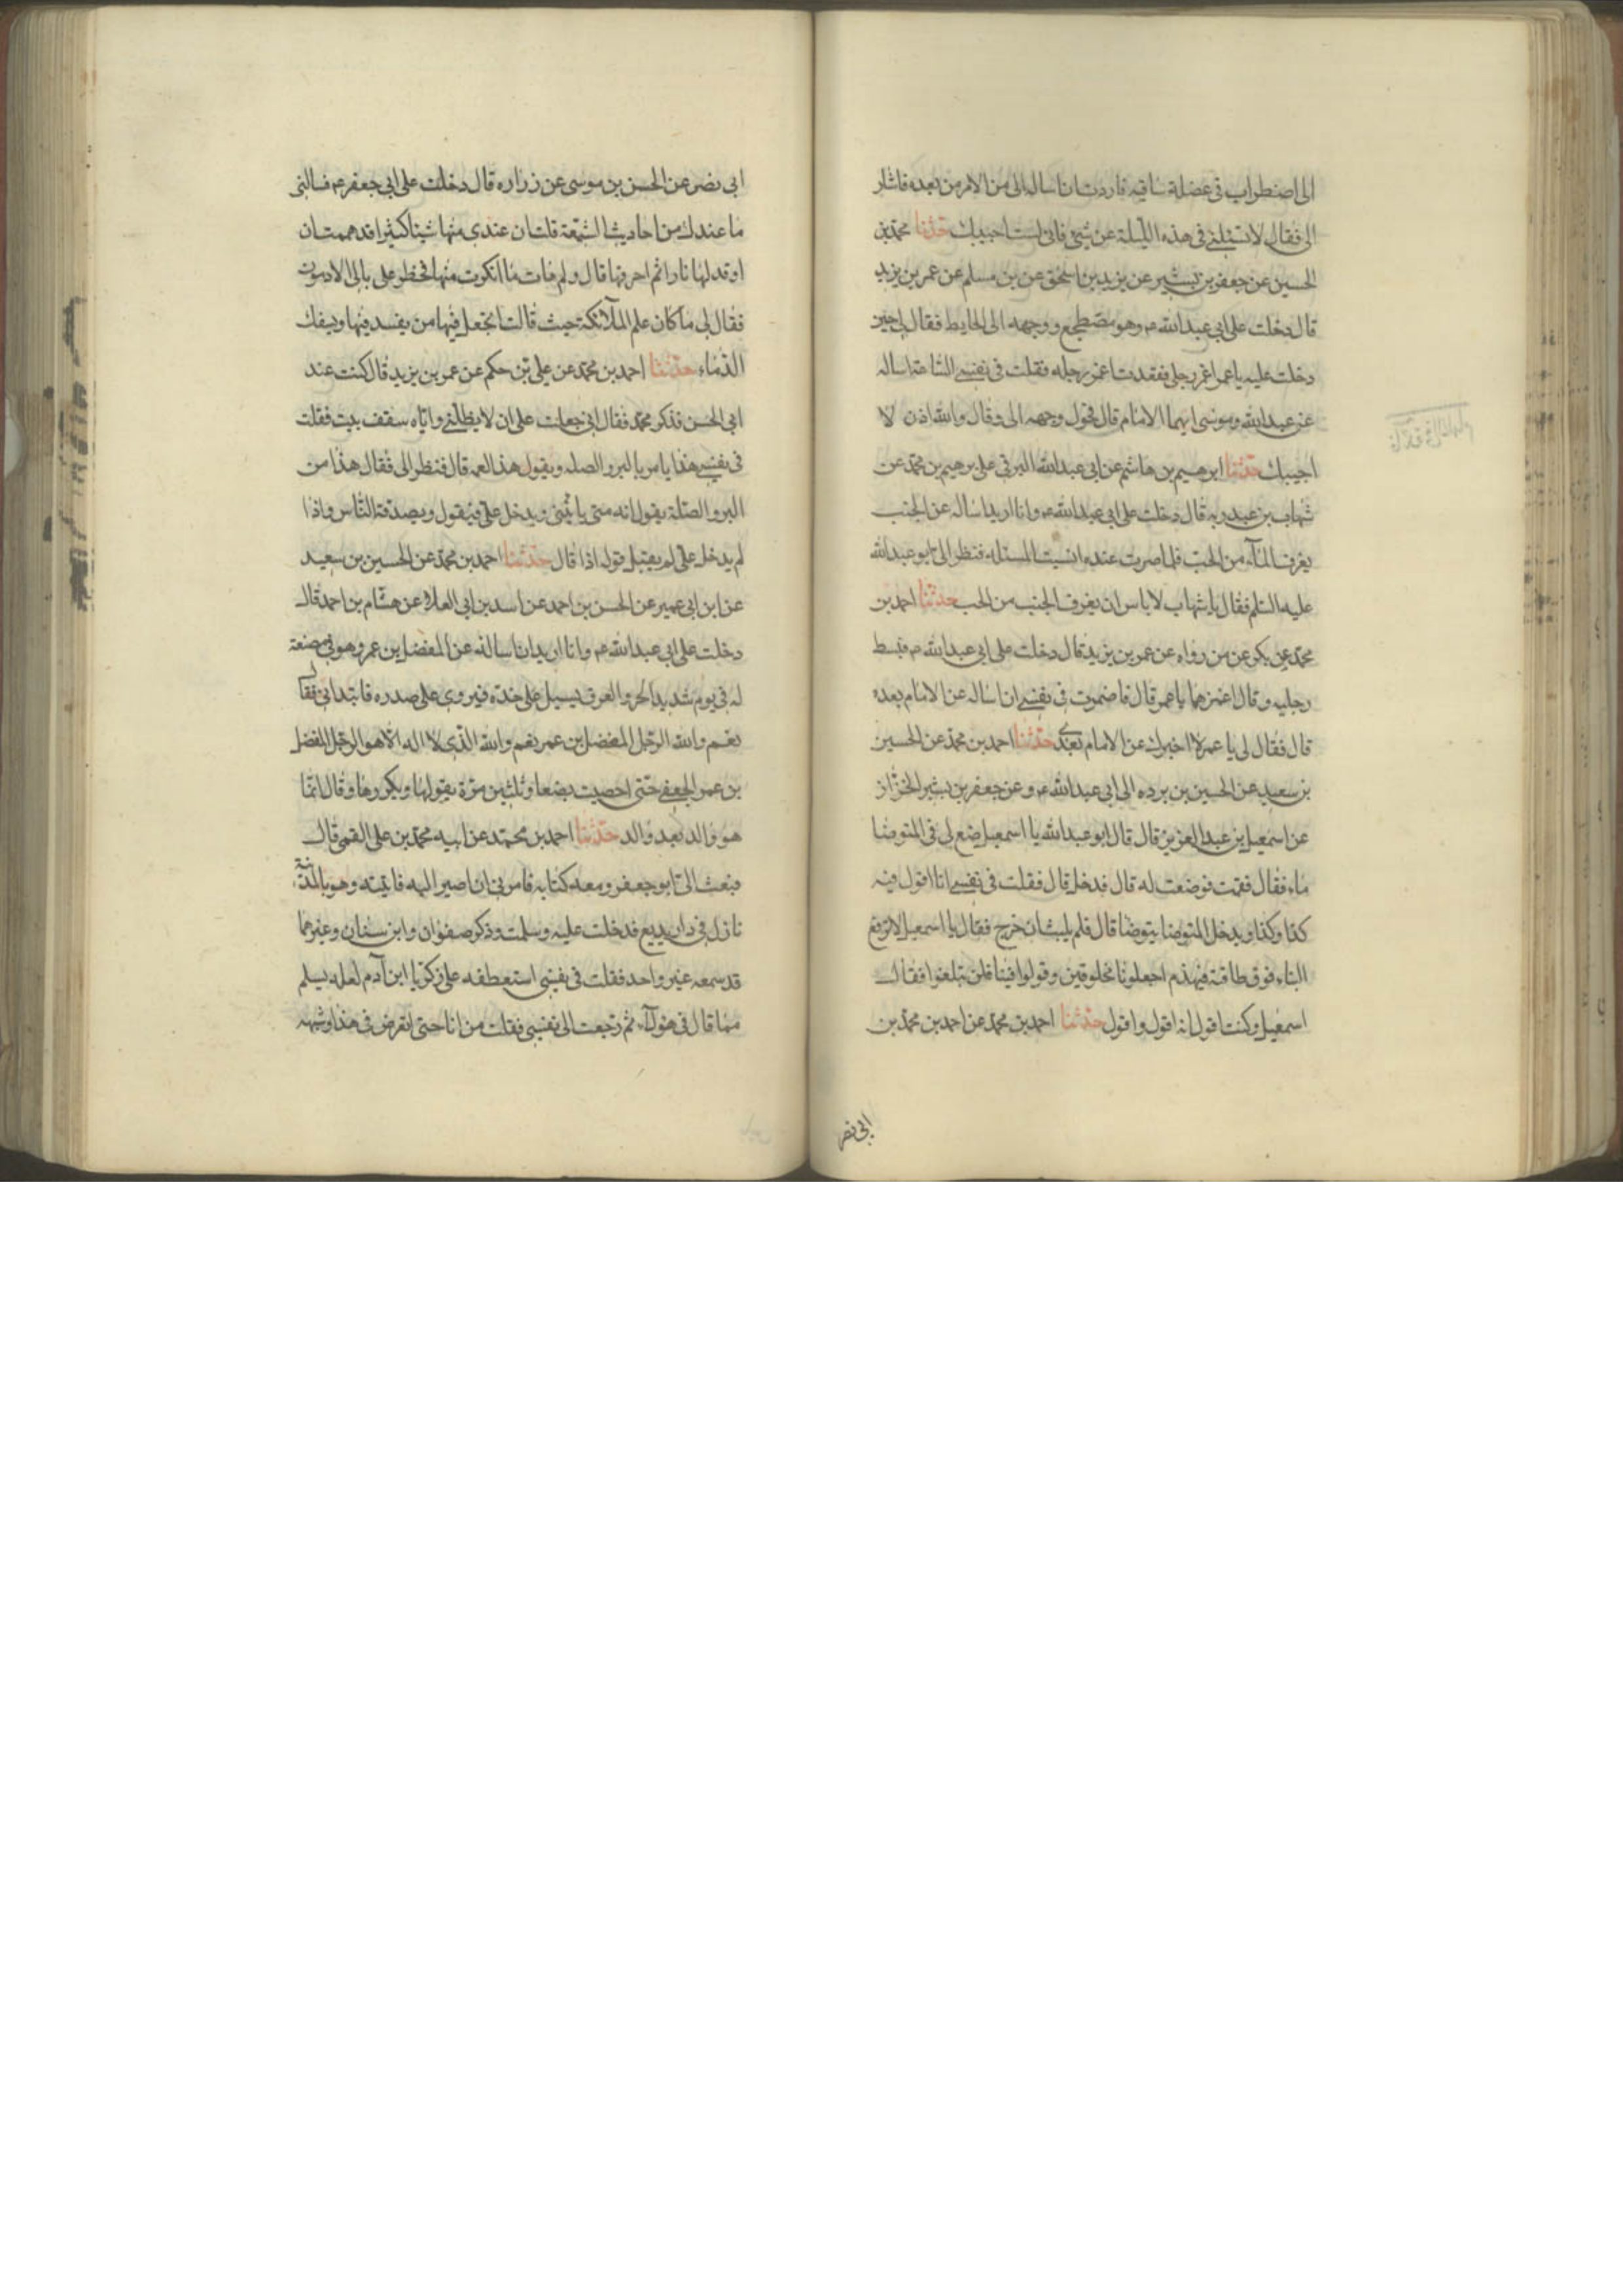 الى اضطراب فى عضلة ساقيه فاردت ان اساله الى من الامر من بعده فاشار
الى فقال لا تسئلنى فى هذه الليلة عن شئ فانى لست اجيبك حدثنا محمد بن
الحسين عن جعفر بن بشير عن يزيد بن اسحق عن بن مسلم عن عمر بن يزيد
قال دخلت على ابى عبدالله ع وهو مضطجع ووجهه الى الحايط فقال لى حين
دخلت عليه يا عمر اغمز رجلى فقعدت اغمز رجله فقلت فى نفسى الساعة اساله
عن عبدالله وموسى ايهما الامام قال فحول وجهه الى وقال والله اذن لا
اجيبك حدثنا ابرهيم بن هاشم عن ابى عبدالله البرقى على برهيم بن محمد عن
شهاب بن عبد ربه قال دخلت على ابى عبدالله ع وانا اريد اساله عن الجنب
يغرف المآء من الحب فلما صرت عنده انسيت المسئله فنظر الى ابو عبدالله
عليه السلم فقال يا شهاب لا باس ان يغرف الجنب من الحب حدثنا احمد بن
محمد عن بكر عن من رواه عن عمر بن يزيد قال دخلت على ابى عبدالله ع فبسط
رجليه وقال اغمزهما يا عمر قال فاضمرت فى نفسى ان اساله عن الامام بعده
قال فقال لى يا عمر لا اخبرك عن الامام بعدى حدثنا احمد بن محمد عن الحسين
بن سعيد عن الحسين بن برده الى ابى عبدالله ع وعن جعفر بن بشير الخزاز
عن اسمعيل بن عبد العزيز قال قال ابو عبدالله يا اسمعيل ضع لى فى المتوضا
ماء فقال فقمت فوضعت له قال فدخل قال فقلت فى نفسى انا اقول فيه
كذا وكذا ويدخل المتوضا يتوضا قال فلم يلبث ان خرج فقال يا اسمعيل لا ترفع
البناء فوق طاقته فينهدم اجعلونا مخلوقين وقولوا فينا فلن تبلغوا فقال
اسمعيل وكنت اقول انه اقول واقول حدثنا احمد بن محمد عن احمد بن محمد بن
ابى نصر
ابى نصر عن الحسن بن موسى عن زراره قال دخلت على ابى جعفر ع فسالنى
ما عندك من احاديث الشيعة قلت ان عندى منها شيئا كثيرا قد هممت ان
اوقد لها نارا ثم احرقها قال ولم هات ما انكرت منها فخطر على بالى الادمون
فقال لى ما كان علم الملآئكة حيث قالت اتجعل فيها من يفسد فيها ويسفك
الدماء حدثنا احمد بن محمد عن على بن حكم عن عمر بن يزيد قال كنت عند
ابى الحسن فذكر محمد فقال انى جعلت على ان لا يظلنى واياه سقف بيت فقلت
فى نفسى هذا يامر بالبر والصله ويقول هذا لعمه قال فنظر الى فقال هذا من
البر والصلة يقول انه متى ياتينى ويدخل على فيقول ويصدقه الناس واذا
لم يدخل على لم يقبل قوله اذا قال حدثنا احمد بن محمد عن الحسين بن سعيد
عن ابن ابى عمير عن الحسن بن احمد عن اسد بن ابى العلا عن هشام بن احمد قال
دخلت على ابى عبدالله ع وانا اريد ان اساله عن المفضل بن عمر وهو فى مضنعة
له فى يوم شديد الحر والعرق يسيل على خده فيروى على صدره فابتدانى فقال
نعم والله الرجل المفضل بن عمر نعم والله الذى لا اله الا هو الرجل المفضل
بن عمر الجعفى حتى احصيت بضعا وثلثين مرة يقولها ويكررها وقال انما
هو والد بعد والد حدثنا احمد بن محمد عن ابيه محمد بن على القمى قال
فبعث الى ابو جعفر ومعه كتابه فامرنى ان اصير اليه فاتيته وهو بالمدينة
نازل فى دار بديع فدخلت عليه وسلمت وذكر صفوان وابن سنان وغيرهما
قد سمعه غير واحد فقلت فى نفسى استعطفه على زكريا ابن آدم لعله يسلم
مما قال فى هولآء ثم رجعت الى نفسى فقلت من انا حتى اتعرض فى هذا وشبهه